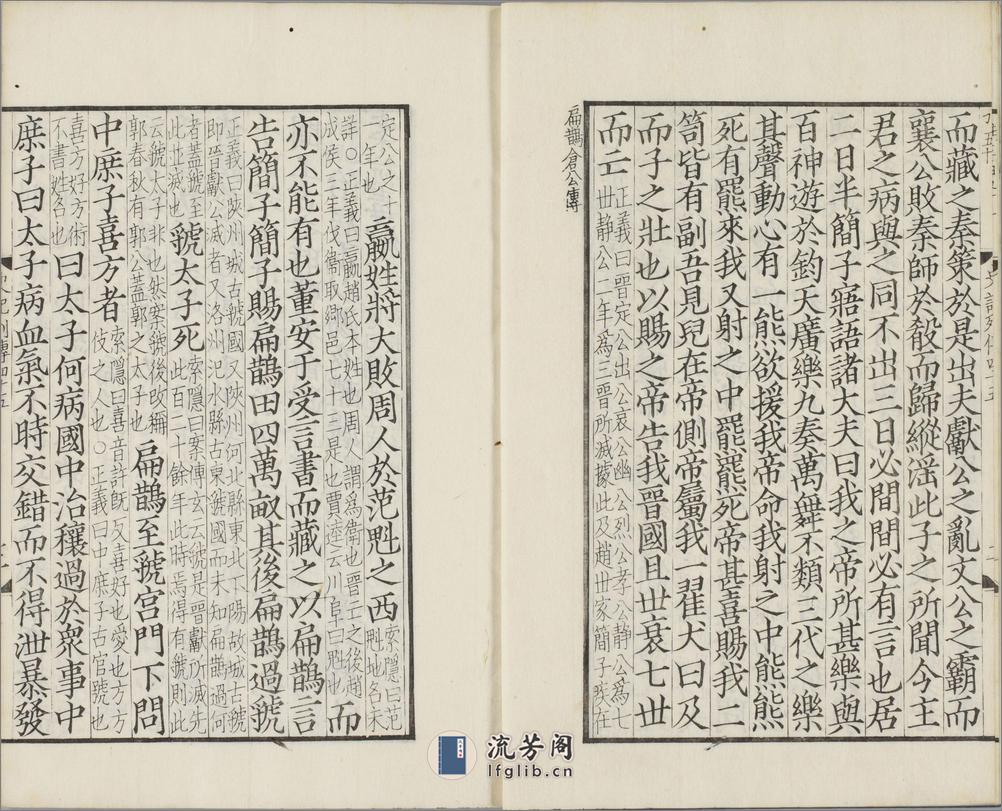 而藏之秦策於是出夫獻公之亂文公之霸而
襄公敗秦師於殽而歸縱淫此子之所聞今主
君之病與之同不出三日必間間必有言也居
二日半簡子寤語諸大夫曰我之帝所甚樂與
百神遊於鈞天廣樂九奏萬舞不類三代之樂
其聲動心有一熊欲援我帝命我射之中熊熊
死有羆來我又射之中羆羆死帝甚喜賜我二
笥皆有副吾見兒在帝側帝屬我一翟犬曰及
而子之壯也以賜之帝告我晉國且世衰七世
而亡
正義曰晉定公出公哀公幽公烈公孝公靜公為七
世靜公二年為三晉所滅據此及趙世家簡子疾在
扁鵲倉公傳
定公之十
一年也
嬴姓將大敗周人於范魁之西
索隱曰范
魁地名未
詳○正義曰嬴趙氏本姓也周人謂為衛也晉亡之後趙
成侯三年伐衛取鄉邑七十三是也賈逵云川阜曰魁也
而
亦不能有也董安于受言書而藏之以扁鵲言
告簡子簡子賜扁鵲田四萬畝其後扁鵲過虢
正義曰陝州城古虢國又陝州河北縣東北下陽故城古虢
即晉獻公滅者又洛州汜水縣古東虢國而未知扁鵲過何
者蓋虢至
此並滅也
虢太子死
索隱曰案傳玄云虢是晉獻所滅先
此百二十餘年此時焉得有虢則此
云虢太子非也然案虢後改稱
郭春秋有郭公蓋郭之太子也
扁鵲至虢宮門下問
中庶子喜方者
索隱曰喜音許旣反喜好也愛也方方
伎之人也○正義曰中庶子古官號也
喜方好方術
不書姓名也
曰太子何病國中治穰過於衆事中
庶子曰太子病血氣不時交錯而不得泄暴發
流芳阁
lfglib.cn